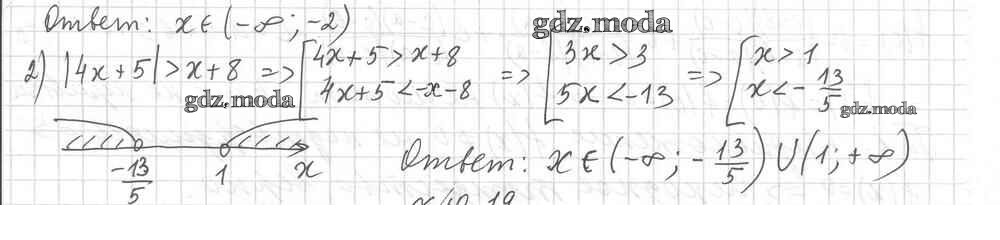 Ответ: x ∈ (-∞; -2)
gdz.moda
2) |4x+5| > x+8 => [4x+5 > x+8 => [3x > 3 => [x > 1
4x+5 < -x-8 5x < -13 x < - 13/5
gdz.moda
gdz.moda
-13/5 1 x
Ответ: x ∈ (-∞; - 13/5) ∪ (1; +∞)